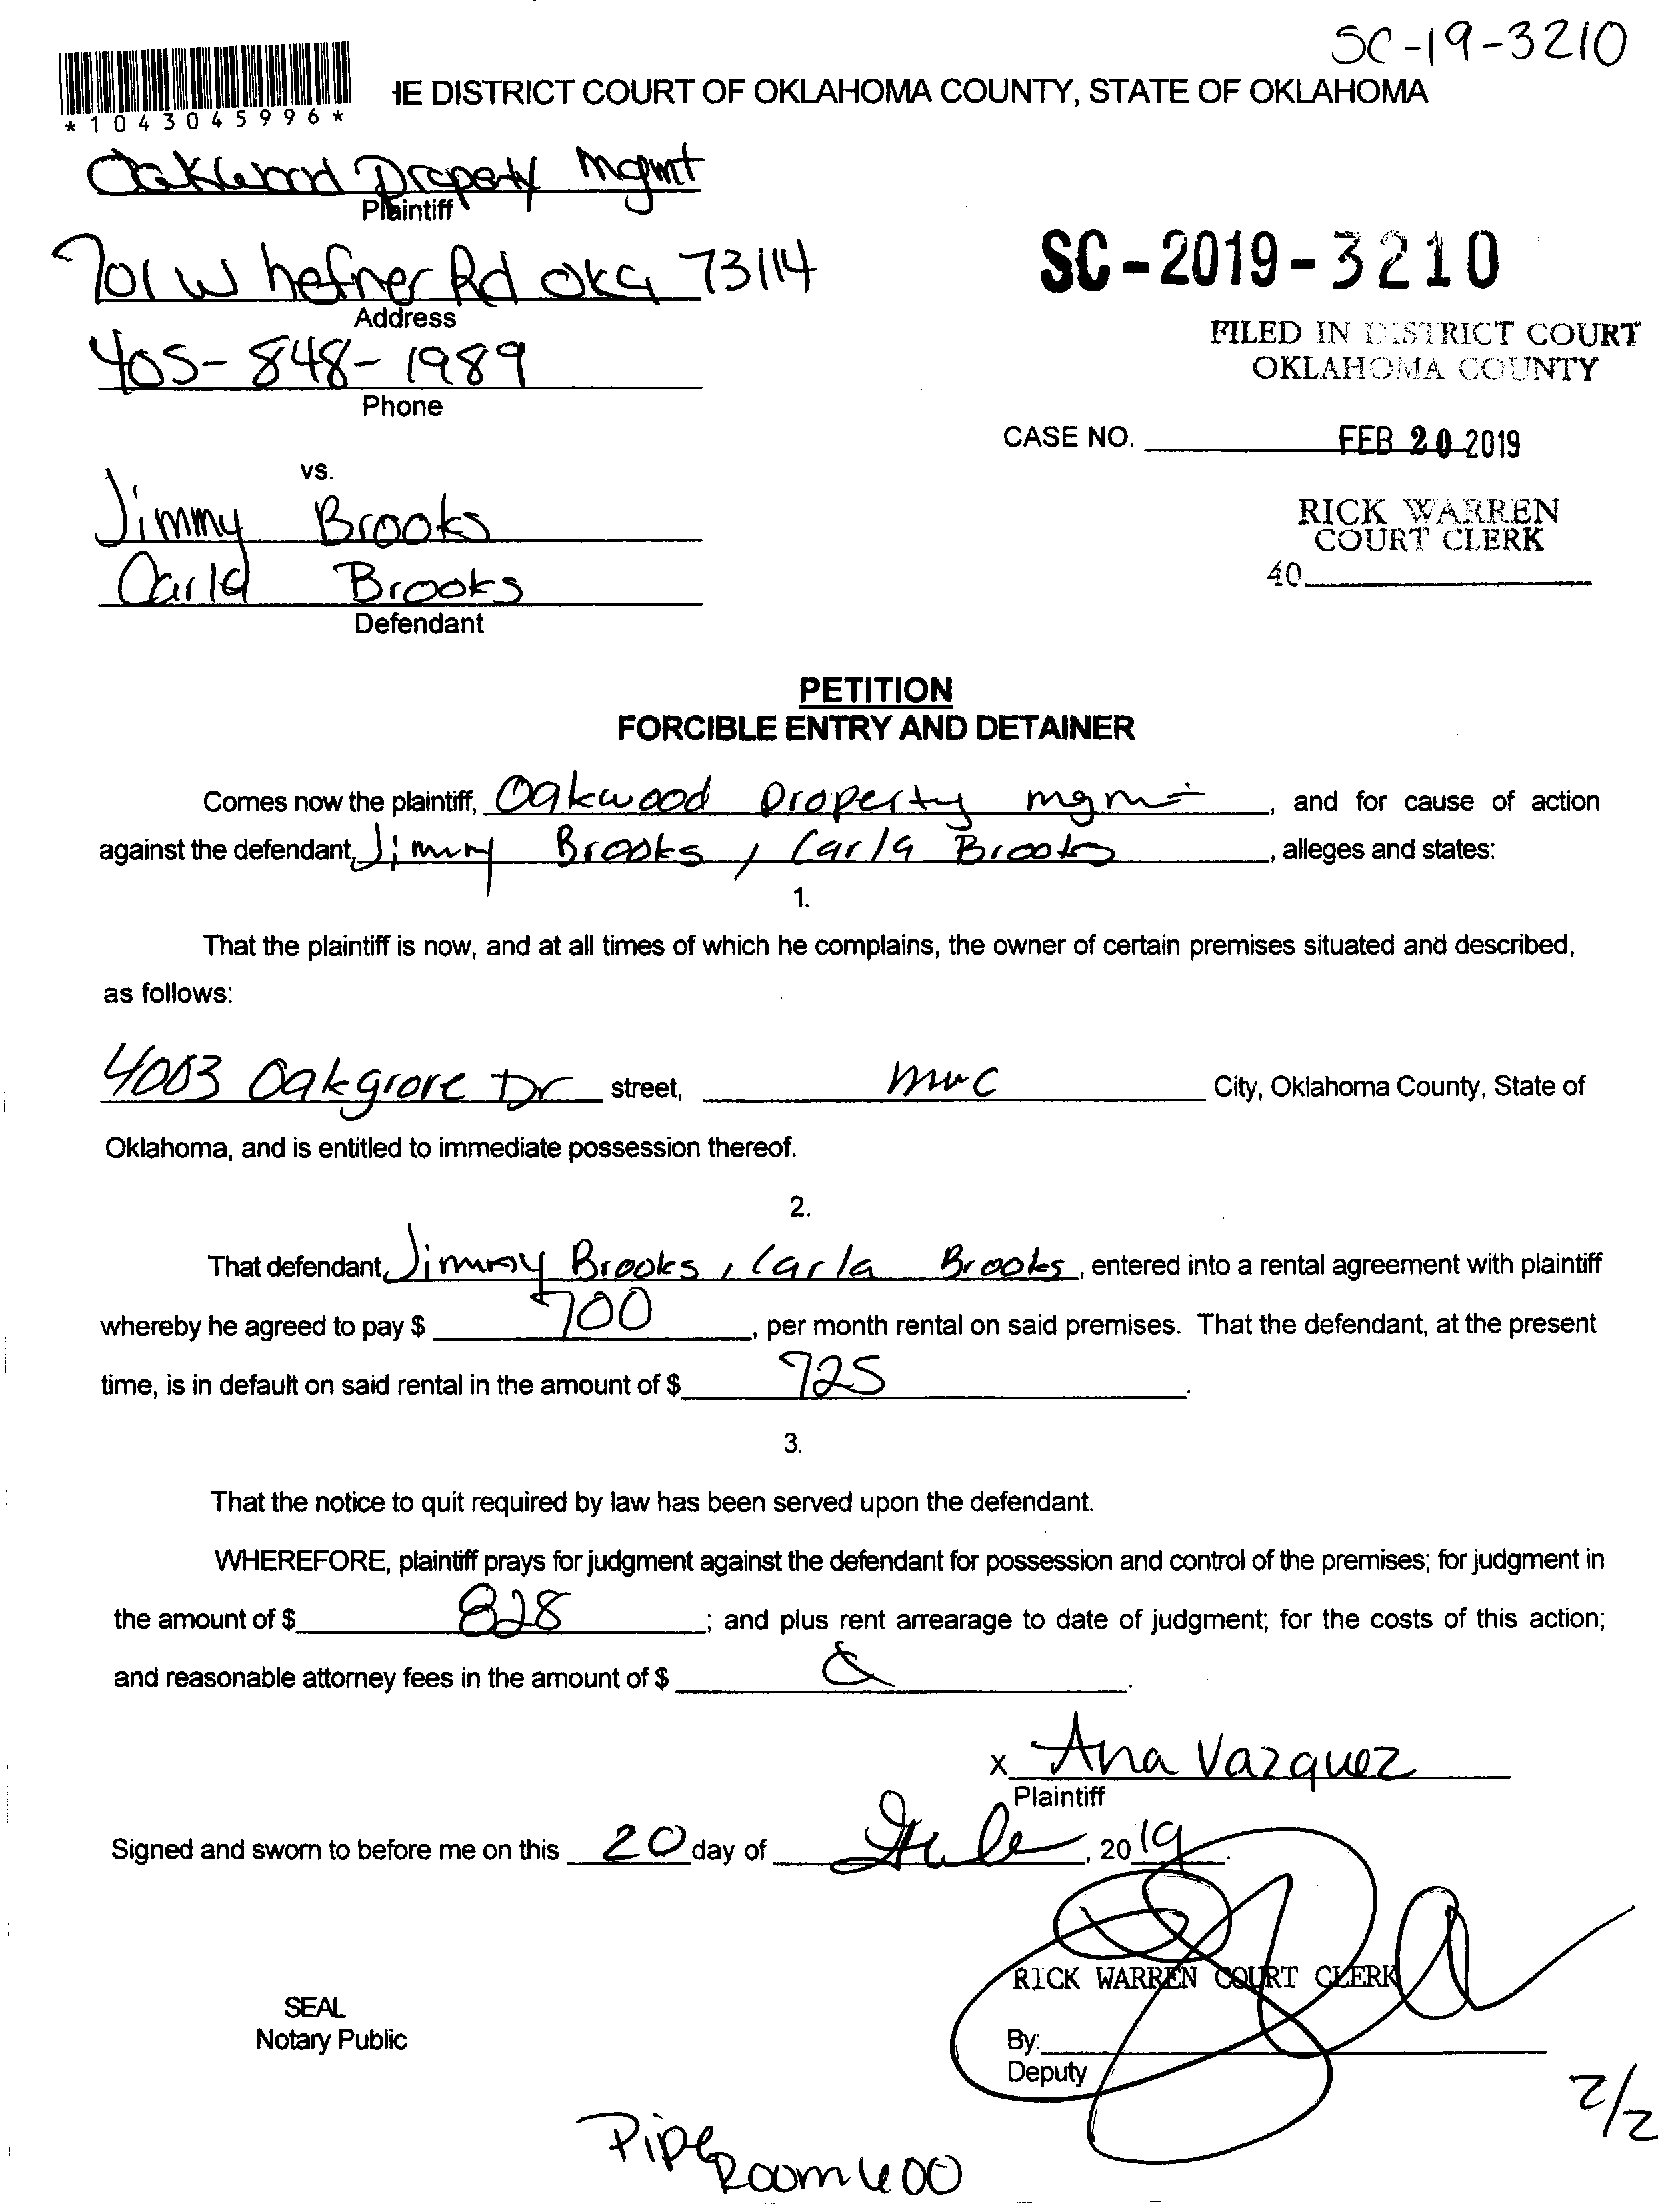 SC-19-3210
*1043045996*
IE DISTRICT COURT OF OKLAHOMA COUNTY, STATE OF OKLAHOMA
Oakwood Property Mgmt
Plaintiff
701 W hefner Rd OKC 73114
Address
405-848-1989
Phone
SC-2019-3210
FILED IN DISTRICT COURT
OKLAHOMA COUNTY
CASE NO. FEB 20 2019
vs.
Jimmy Brooks
Carla Brooks
Defendant
RICK WARREN
COURT CLERK
40
PETITION
FORCIBLE ENTRY AND DETAINER
Comes now the plaintiff, Oakwood property mgmt, and for cause of action
against the defendant, Jimmy Brooks, Carla Brooks, alleges and states:
1.
That the plaintiff is now, and at all times of which he complains, the owner of certain premises situated and described,
as follows:
4003 Oakgrove Dr street, mwc City, Oklahoma County, State of
Oklahoma, and is entitled to immediate possession thereof.
2.
That defendant, Jimmy Brooks, Carla Brooks, entered into a rental agreement with plaintiff
whereby he agreed to pay $ 700, per month rental on said premises. That the defendant, at the present
time, is in default on said rental in the amount of $ 725.
3.
That the notice to quit required by law has been served upon the defendant.
WHEREFORE, plaintiff prays for judgment against the defendant for possession and control of the premises; for judgment in
the amount of $ 828; and plus rent arrearage to date of judgment; for the costs of this action;
and reasonable attorney fees in the amount of $
x Ana Vazquez
Plaintiff
Signed and sworn to before me on this 20 day of , 2019.
RICK WARREN COURT CLERK
SEAL
Notary Public
By:
Deputy
2/2
Pipe
Room 600